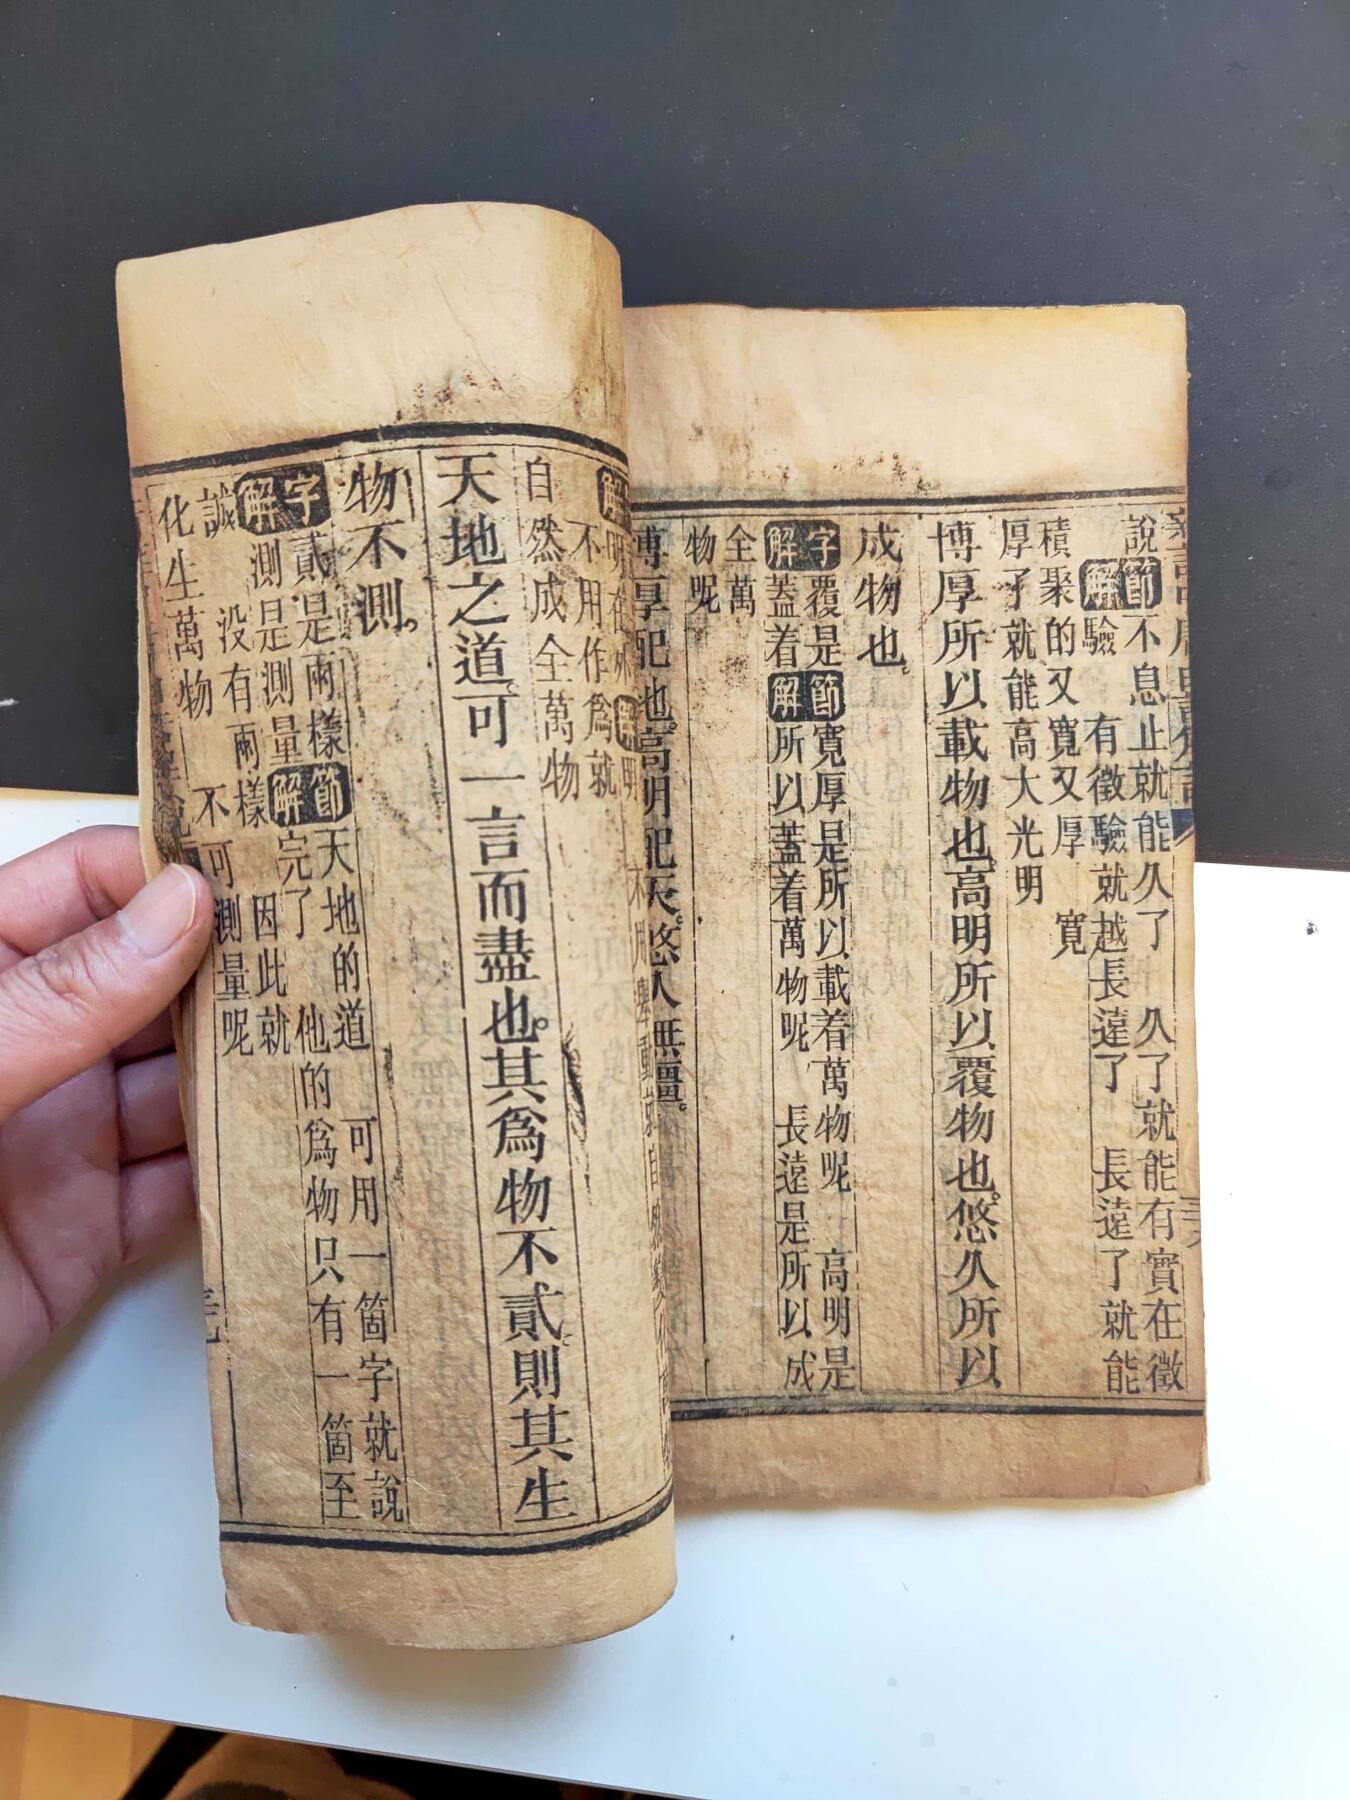 說節解不息止就能久了　久了就能有實在徵
驗　有徵驗就越長遠了　長遠了就能
積聚的又寬又厚　寬
厚了就能高大光明
博厚所以載物也。高明所以覆物也。悠久所以
成物也。
字解覆是蓋着節解寬厚是所以載着萬物呢　高明是
所以蓋着萬物呢　長遠是所以成
全萬
物呢
博厚配地。高明配天。悠久無疆。
不用作爲就
自然成全萬物
天地之道。可一言而盡也。其爲物不貳。則其生
物不測。
字解貳是兩樣　測是測量節解天地的道　可用一箇字就說
完了　他的爲物只有一箇至
誠　没有兩樣　因此就
化生萬物　不可測量呢